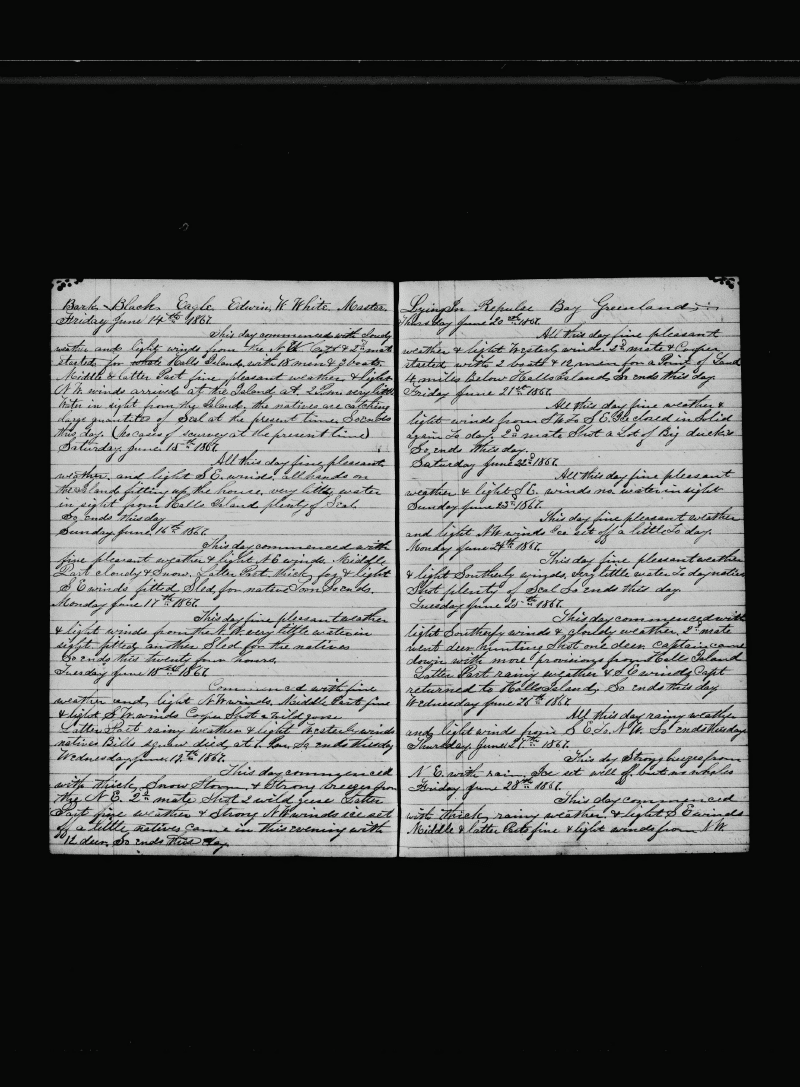 Bark Black Eagle Edwin, W. White. Master.
Friday June 14th 1867.
This day commenced with cloudy
weather and light winds from the N.W. Capt & 2d mate
started for whole Halls Island, with 18 men & 3 boats.
Middle & latter Part fine pleasant weather & light
N.W. winds arrived at the Island at 2 P.m. very little
water in sight from the Island, the natives are catching
large quantites of Seal at the present time So ends
this day. (no cases of scurvey at the present time)
Saturday June, 15th 1867.
All this day fine, pleasant,
weather, and light S.E. winds. all hands on
the Island fitting up the house, very little water
in sight from Halls Island plenty of Seal
So ends this day
Sunday June, 16th 1867.
This day commenced with
fine pleasant weather & light N.E winds Middle
Part cloudy & Snow. Latter Part thick fog & light
S.E winds fitted Sled for native Tom So ends.
Monday June 17th 1867.
This day fine pleasant weather
& light winds from the N.W. very little water in
sight fitted another Sled for the natives
So ends this twenty four hours.
Tuesday June 18th 1867
Commenced with fine
weather and light N.W winds. Middle Part fine
& light S.W. winds Shot a Wild goose
Latter Part rainy weather & light Westerly winds
natives Bills squaw died, at P.m. So ends this day
Wednesday June, 19th 1867.
This day commenced
with thick, Snow Storm, & Strong breezes from
the N.E. 2d mate Shot 2 wild geese Latter
Part fine weather & Strong N.W winds ice set
off a little natives came in this evening with
12 deer, So ends this day
Lying In Repulse Bay Greenland
Thursday June 20th 1867.
All this day fine pleasant
weather & light Westerly winds. 2d mate & Cooper
started with 2 boats & 12 men for a Point of Land
miles Below Halls Island, So ends this day.
Friday June 21st 1867.
All this day fine weather &
light winds from S.W. to S.E. Ice closed in Solid
again to day. 2d mate Shot a Lot of Big ducks
So, ends this day.
Saturday June 22d 1867.
All this day fine pleasant
weather & light S.E. winds no water in sight
Sunday June 23d 1867.
This day fine pleasant weather
and light N.W. winds Ice set off a little to day.
Monday June 24th 1867.
This day fine pleasant weather
& light Southerly winds, very little water to day natives
Shot plenty of Seal So ends this day
Tuesday June 25th 1867.
This day commenced with
light Southerly winds & cloudy weather, 2d mate
went deer hunting Shot one deer. Captain came
down with more provisions from Halls Island
Latter Part rainy weather & S.E windy Capt
returned to Halls Island, So ends this day
Wednesday June 26th 1867.
All this day rainy weather
and light winds from S.E. to N.W. So ends this day
Thursday. June 27th 1867.
This day Strong breezes from
N.E. with rain, Ice set well off but no whales
Friday June 28th 1867.
This day commenced
with thick, rainy weather, & light S.E winds
Middle & latter Parts fine & light winds from N.W.